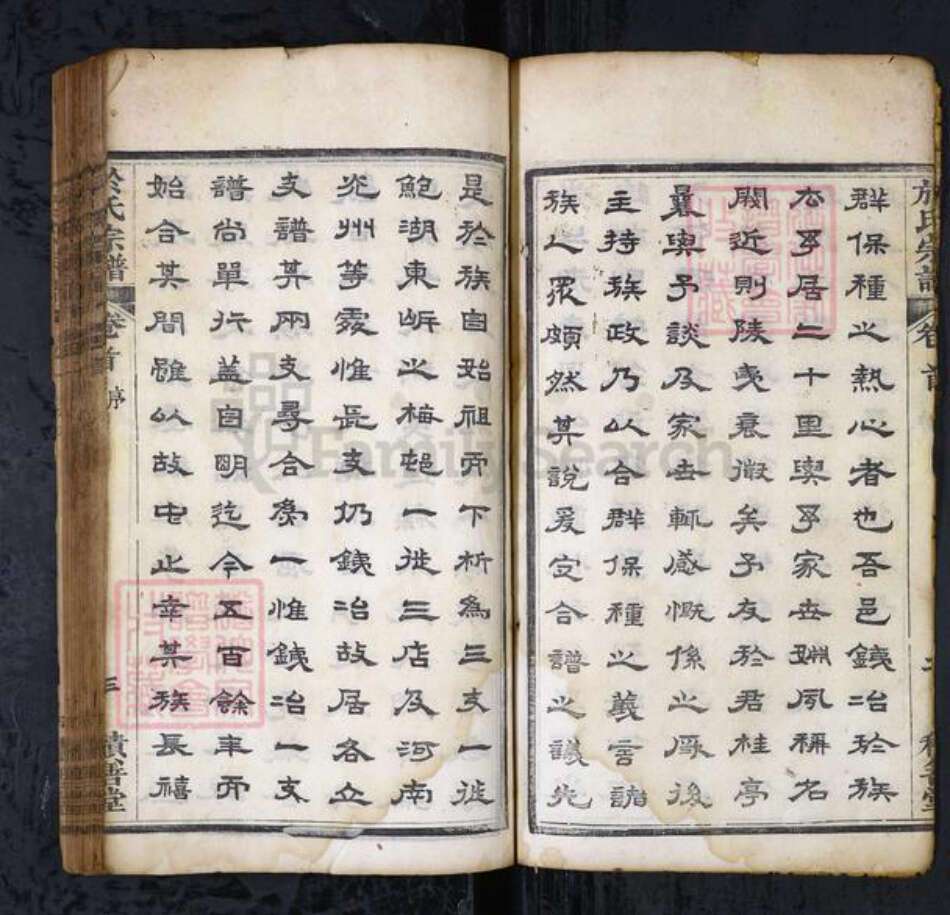 於氏宗譜 卷首
群保種之熱心者也吾邑錢冶於族
公乎居二十里與吾家世姻夙稱名
閥近則陵夷衰微矣予友於君桂亭
曩與予談及家世輒感慨係之厥後
主持族政乃以合群保種之義言諸
族人眾頗然其說爰定合譜之議先
是於族自始祖而下析為三支一徙
鮑湖東岍之梅邨一徙三店及河南
光州等處惟長支仍錢冶故居各立
支譜其兩支尋合為一惟錢冶一支
譜尚單行蓋自明迄今五百餘年而
始合其間雖以故中止幸某族長禧
於氏宗譜 卷首 序 三 積善堂
FamilySearch